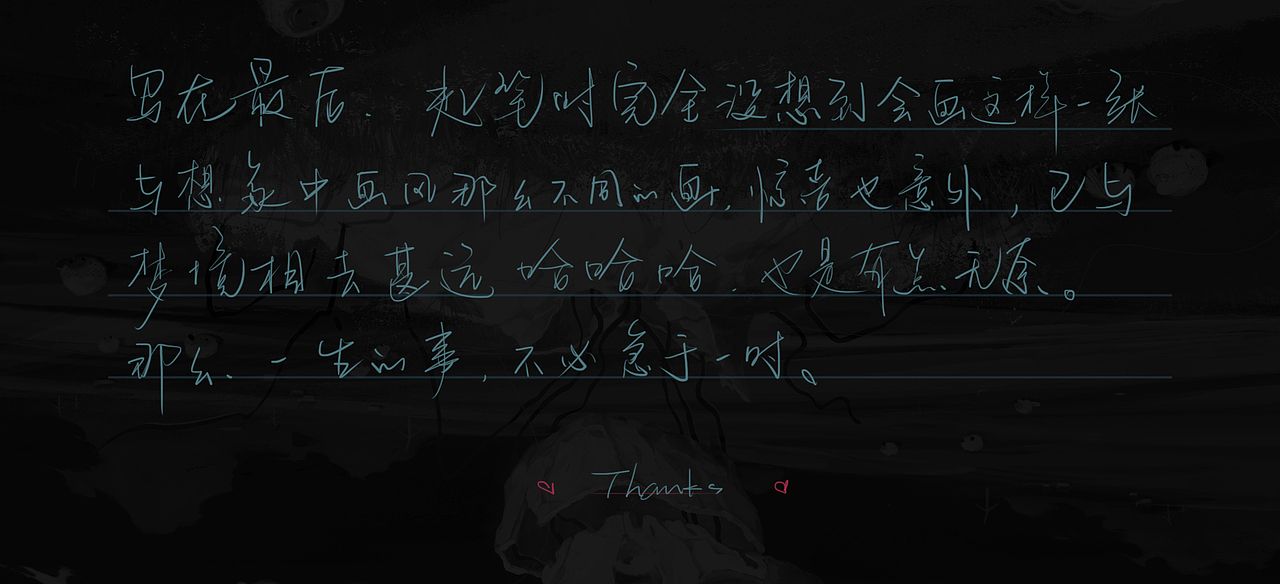 写在最后. 起笔时完全没想到会画这样一张
与想象中画风那么不同的画, 惊喜也意外, 已与
梦境相去甚远 哈哈哈. 也是有点无奈。
那么、一生的事, 不必急于一时。
Thanks